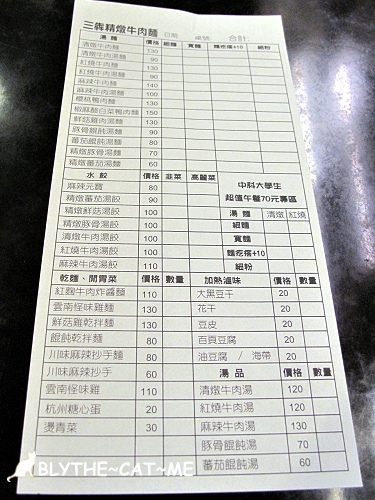 三犇精燉牛肉麵 日期: 桌號: 合計:
湯麵 價格 細麵 寬麵 麵疙瘩+10 細粉
清燉牛肉麵 130
清燉牛肉湯麵 90
紅燒牛肉麵 130
紅燒牛肉湯麵 90
麻辣牛肉麵 140
麻辣牛肉湯麵 100
櫻桃鴨肉麵 130
椒麻酸白菜鴨肉麵 150
鮮菇雞肉湯麵 130
豚骨餛飩湯麵 90
蕃茄餛飩湯麵 80
精燉豚骨湯麵 70
精燉蕃茄湯麵 60
水餃 價格 韭菜 高麗菜
麻辣元寶 80
精燉蕃茄湯餃 90
精燉鮮菇湯餃 100
精燉豚骨湯餃 100
清燉牛肉湯餃 100
紅燒牛肉湯餃 100
麻辣牛肉湯餃 110
中科大學生
超值午餐70元專區
湯麵 清燉 紅燒
細麵
寬麵
麵疙瘩+10
細粉
乾麵、開胃菜 價格 數量
紅麴牛肉炸醬麵 110
雲南怪味雞麵 130
鮮菇雞乾拌麵 130
餛飩乾拌麵 80
川味麻辣抄手麵 80
川味麻辣抄手 60
雲南怪味雞 110
杭州糖心蛋 20
燙青菜 30
加熱滷味 價格 數量
大黑豆干 20
花干 20
豆皮 20
百頁豆腐 20
油豆腐 / 海帶 20
湯品 價格 數量
清燉牛肉湯 120
紅燒牛肉湯 120
麻辣牛肉湯 130
豚骨餛飩湯 70
蕃茄餛飩湯 60
BLYTHE~CAT~ME